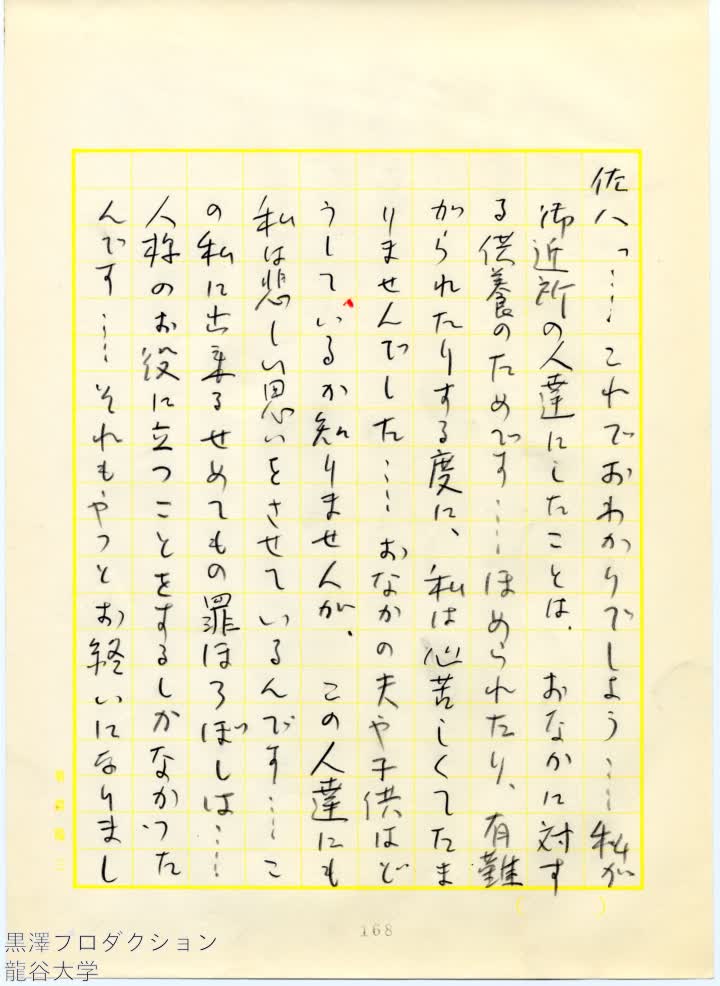 佐八っ……これでおわかりでしよう……私が
御近所の人達にしたことは、おなかに対す
る供養のためです……ほめられたり、有難
がられたりする度に、私は心苦しくてたま
りませんでした……おなかの夫や子供はど
うしているか知りませんが、この人達にも
私は悲しい思いをさせているんです……こ
の私に出来るせめてもの罪ほろぼしは……
人様のお役に立つことをするしかなかつた
んです……それもやつとお終いになりまし
168
黒澤プロダクション
龍谷大学